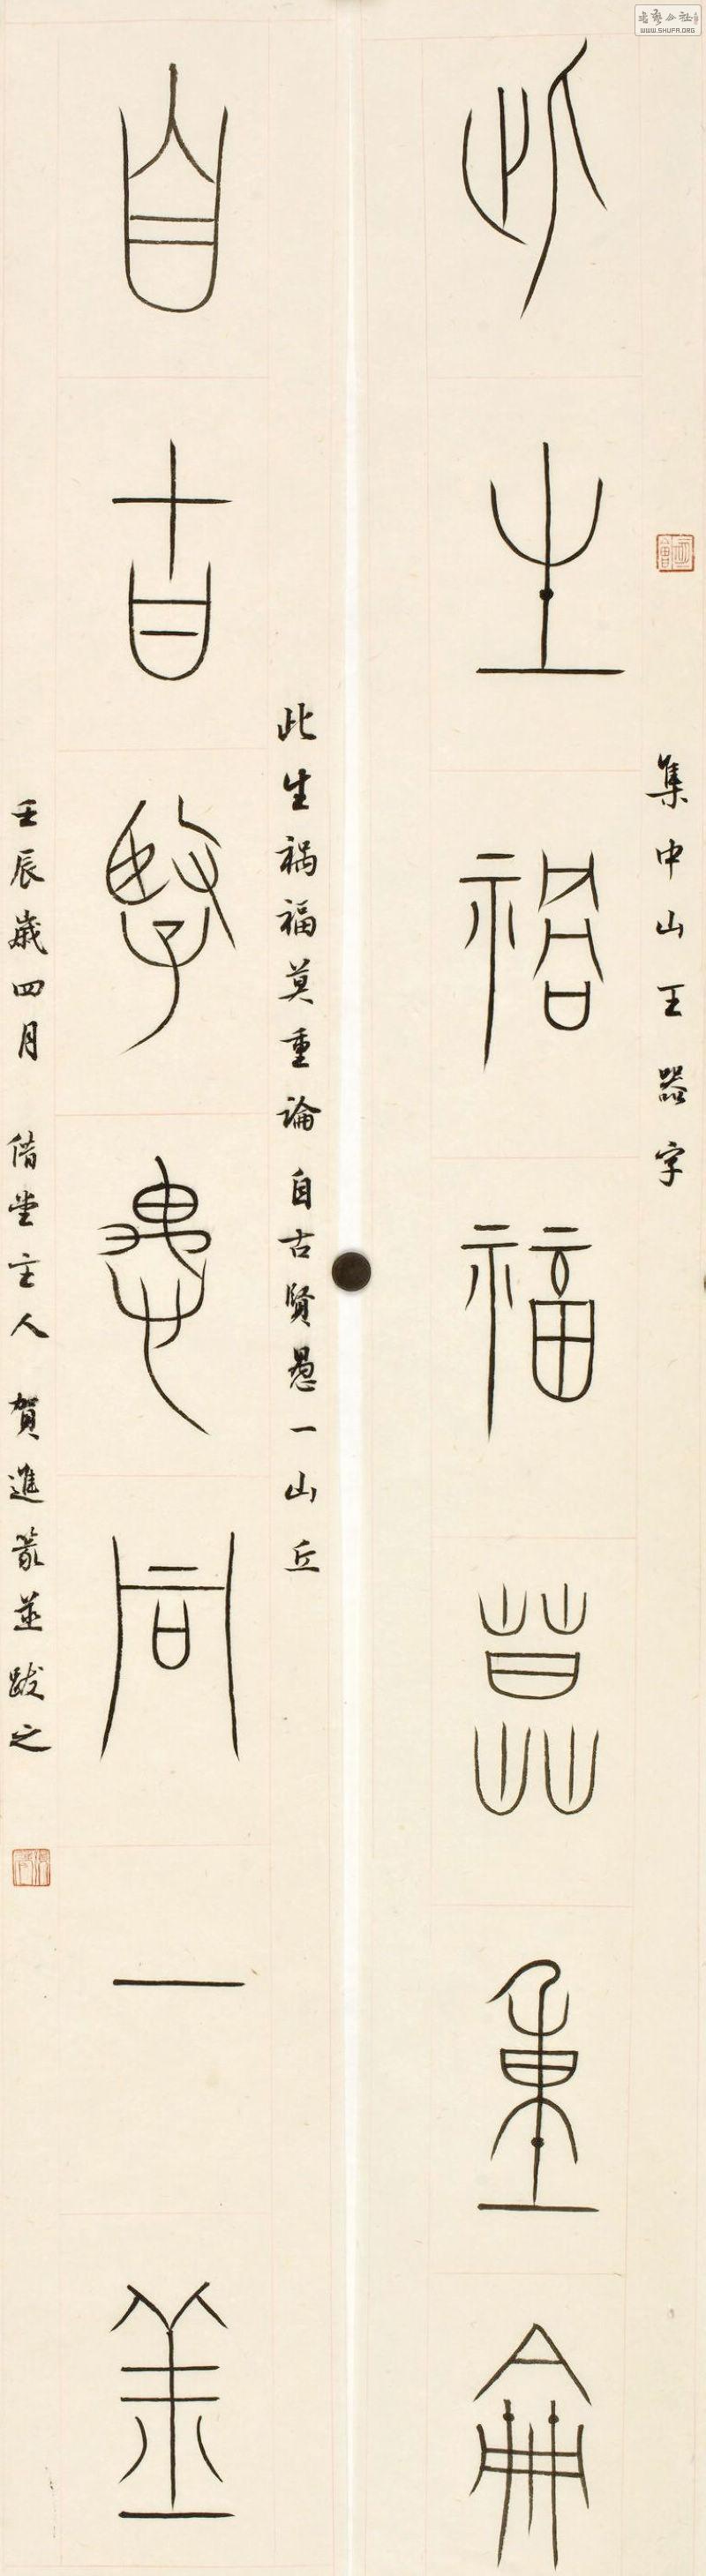 集中山王器字
此生禍福莫重論
此生禍福莫重論 自古賢愚一山丘
自古賢愚同一丘
壬辰歲四月 借堂主人 賀進篆並跋之
WWW.SHUFA.ORG